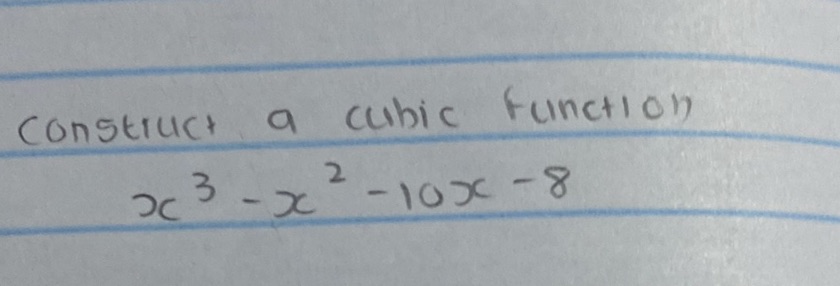 construct a cubic function
x³ - x² - 10x - 8